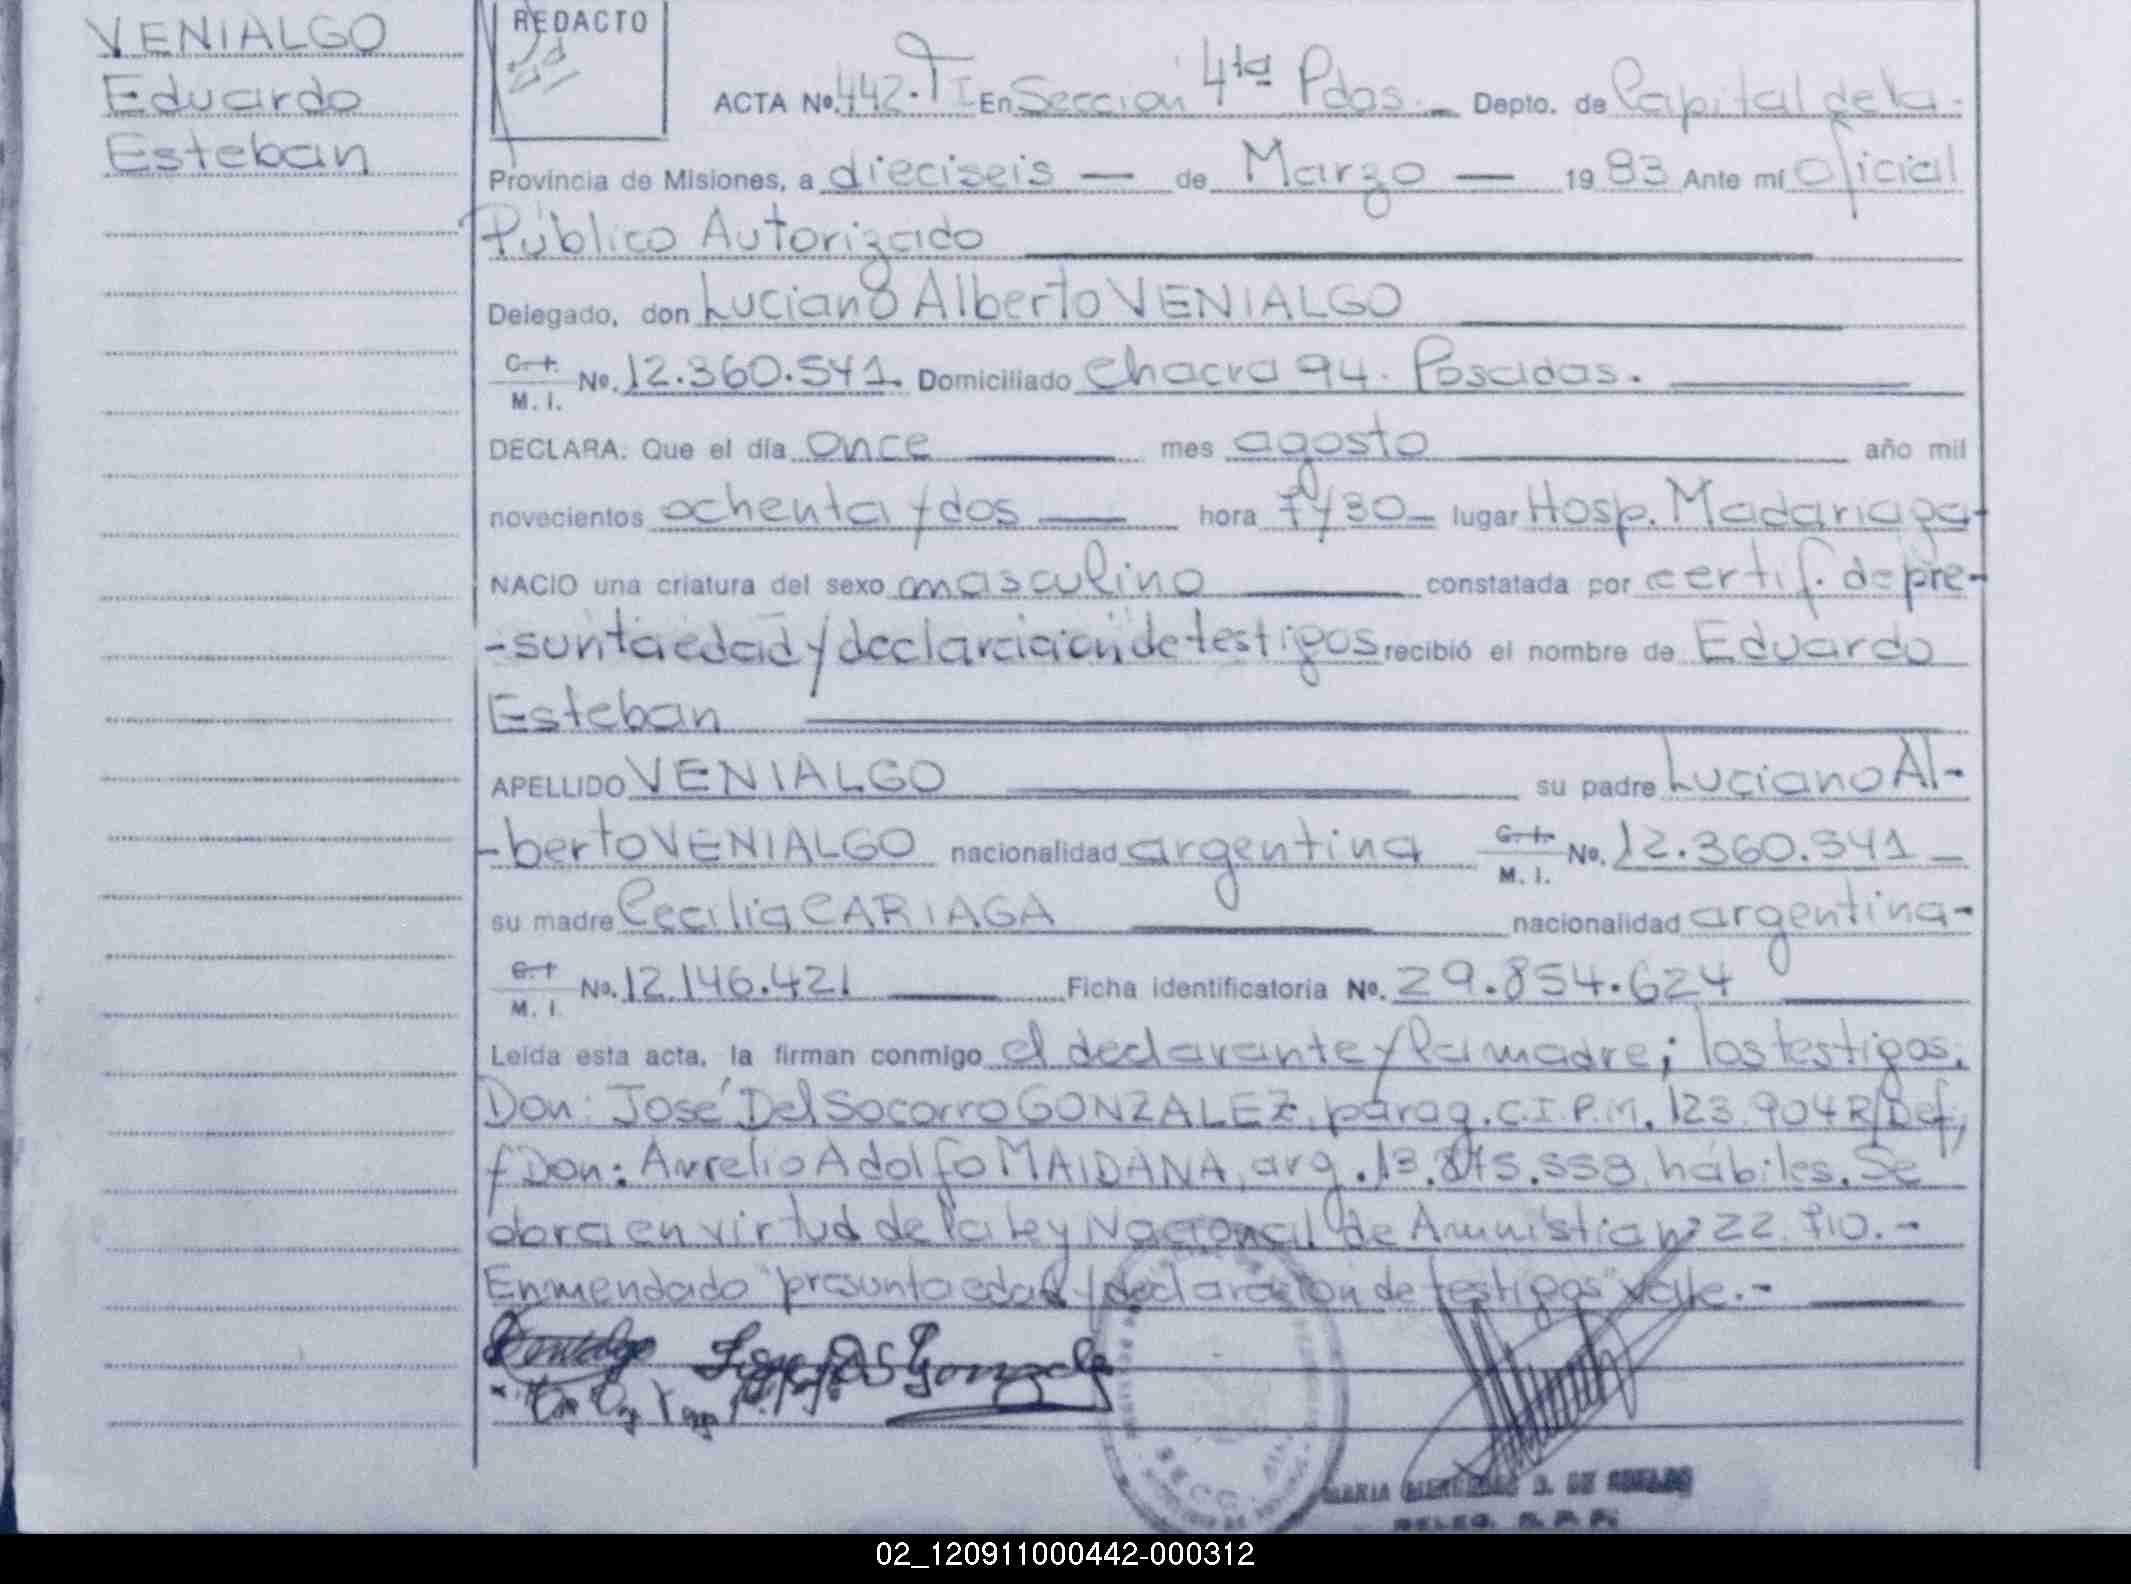 VENIALGO
Eduardo
Esteban
REDACTO
ACTA No. 442. T I En Sección 4ta Pdas. Depto. de Capital de la
Provincia de Misiones, a dieciseis — de Marzo — 1983 Ante mí Oficial
Público Autorizado
Delegado, don Luciano Alberto VENIALGO
C. I. M. I. No. 12.360.541. Domiciliado Chacra 94. Posadas.
DECLARA: Que el día once mes agosto año mil
novecientos ochenta y dos hora 7/30 lugar Hosp. Madariaga
NACIO una criatura del sexo masculino constatada por certif. de pre-
-sunta edad y declaración de testigos recibió el nombre de Eduardo
Esteban
APELLIDO VENIALGO su padre Luciano Al-
-berto VENIALGO nacionalidad argentina C. I. M. I. No. 12.360.541
su madre Cecilia CARIAGA nacionalidad argentina-
C. I. M. I. No. 12.146.421 Ficha identificatoria No. 29.854.624
Leída esta acta, la firman conmigo el declarante y la madre; los testigos.
Don: José Del Socorro GONZALEZ, parag. C.I.P.M. 123.904 R/Def,
y Don: Aurelio Adolfo MAIDANA, arg. 13.875.558, hábiles. Se
obra en virtud de la Ley Nacional de Amnistia nº 22.710.-
Enmendado "presunta edad y declaración de testigos" vale.-
MARIA MERCEDES J. DE
DELEG. R. P. P.
02_120911000442-000312